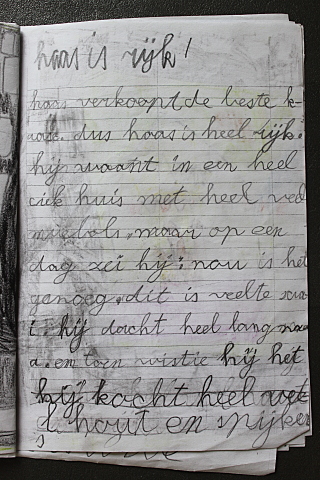 haas is rijk!
haas verkoopt de beste k-
dus haas is heel rijk.
hij woont in een heel
ciek huis met heel veel
meubols. maar op een
dag zei hij: nou is het
genoeg. dit is veelte
hij dacht heel lang na
a. en toen wistie hij het
hij kocht heel vee
l hout en spijker
s